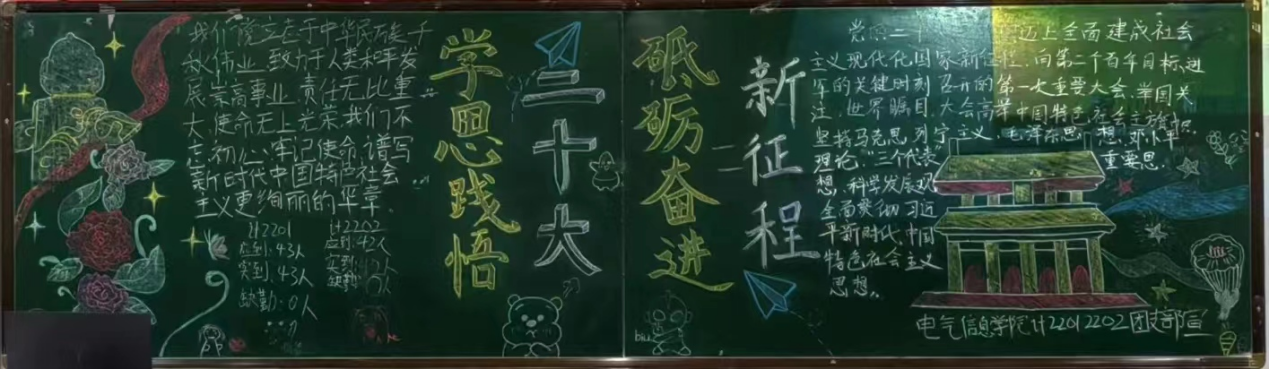 我们誓立志于中华民族千
秋伟业，致力于人类和平发
展崇高事业，责任无比重
大，使命无上光荣。我们不
忘初心、牢记使命，谱写
新时代中国特色社会
主义更绚丽的华章。
计2201
应到：43人
实到：43人
缺勤：0人
计2202
应到：42人
实到：
学思践悟
二十大
砥砺奋进
新征程
党的二十
迈上全面建成社会
主义现代化国家新征程，向第二个百年目标进
军的关键时刻召开的第一次重要大会，举国关
注，世界瞩目。大会高举中国特色社会主义旗帜，
坚持马克思列宁主义、毛泽东思想、邓小平
理论、“三个代表”重要思
想、科学发展观，
全面贯彻习近
平新时代中国
特色社会主义
思想。
biu
电气信息学院计2201 2202团支部宣